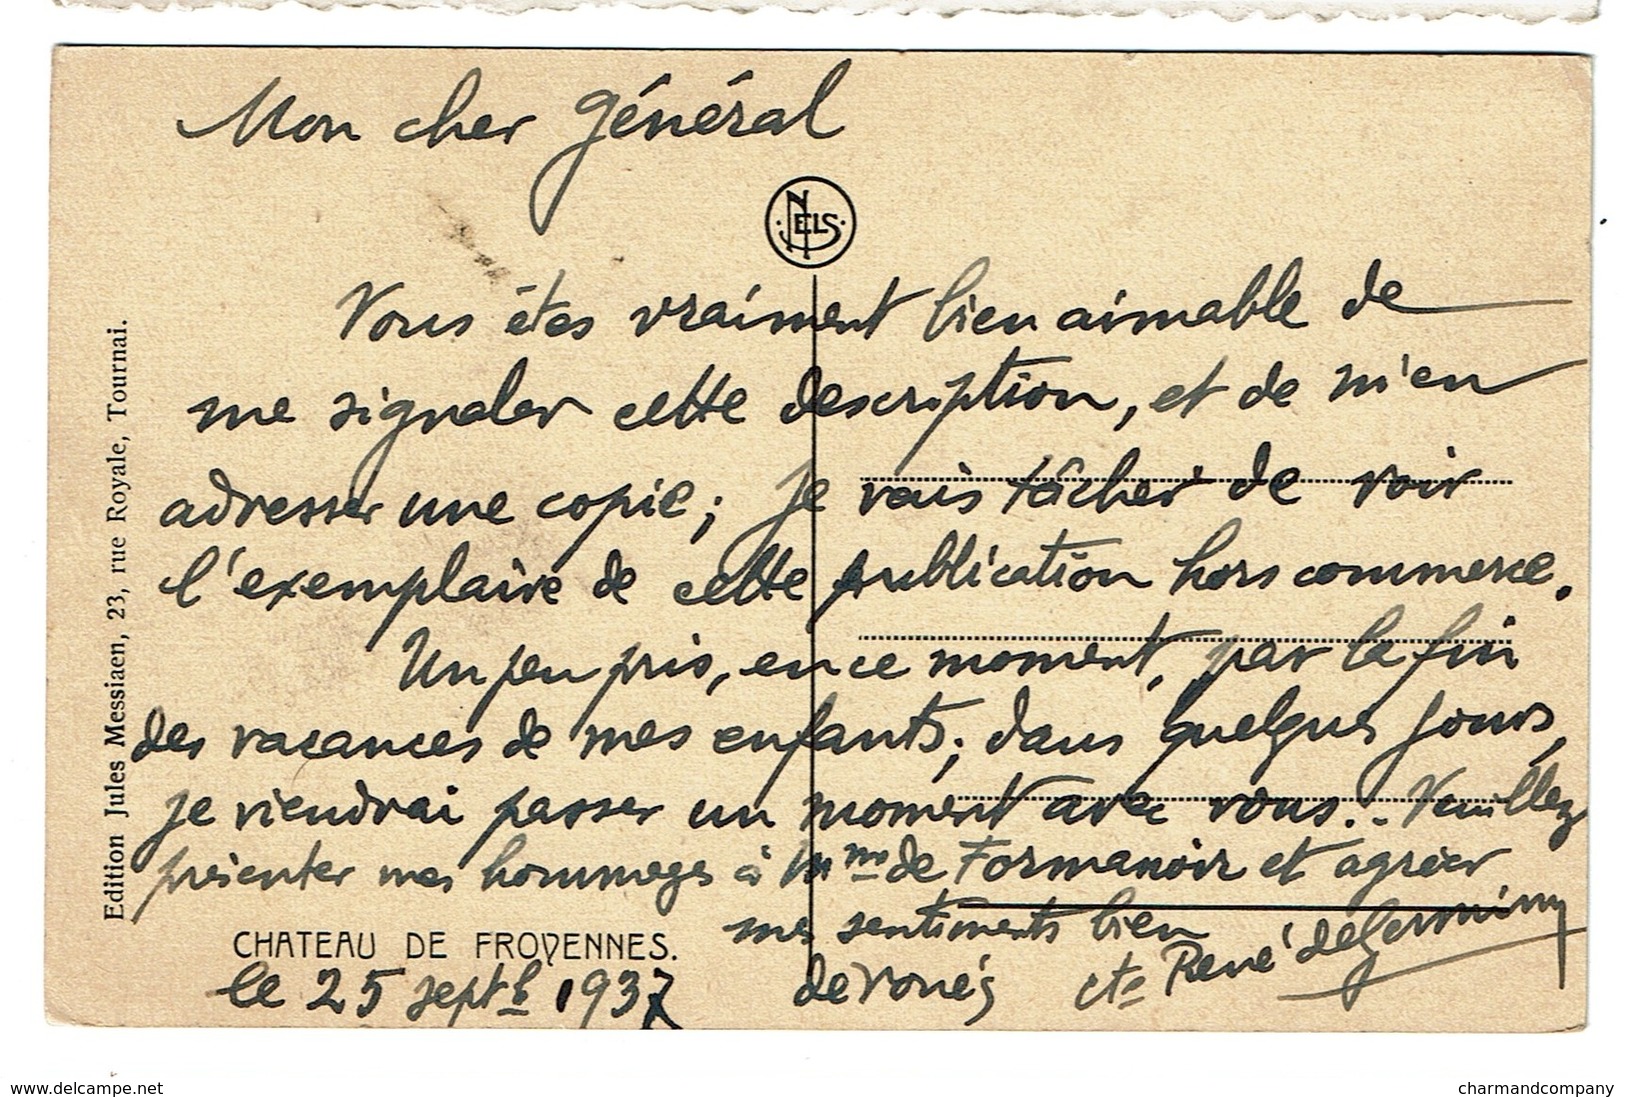 Mon cher général
NELS
Vous êtes vraiment bien aimable de
me signaler cette description, et de m'en
adresser une copie ; je vais tâcher de voir
l'exemplaire de cette publication hors commerce.
Un peu pris, en ce moment, par la fin
des vacances de mes enfants ; dans quelques jours,
je viendrai passer un moment avec vous... Veuillez
présenter mes hommages à Mme de Formanoir et agréer
mes sentiments bien
dévoués cte René de Germiny
CHATEAU DE FROYENNES.
le 25 septb 1937
Edition Jules Messiaen, 23, rue Royale, Tournai.
www.delcampe.net
charmandcompany